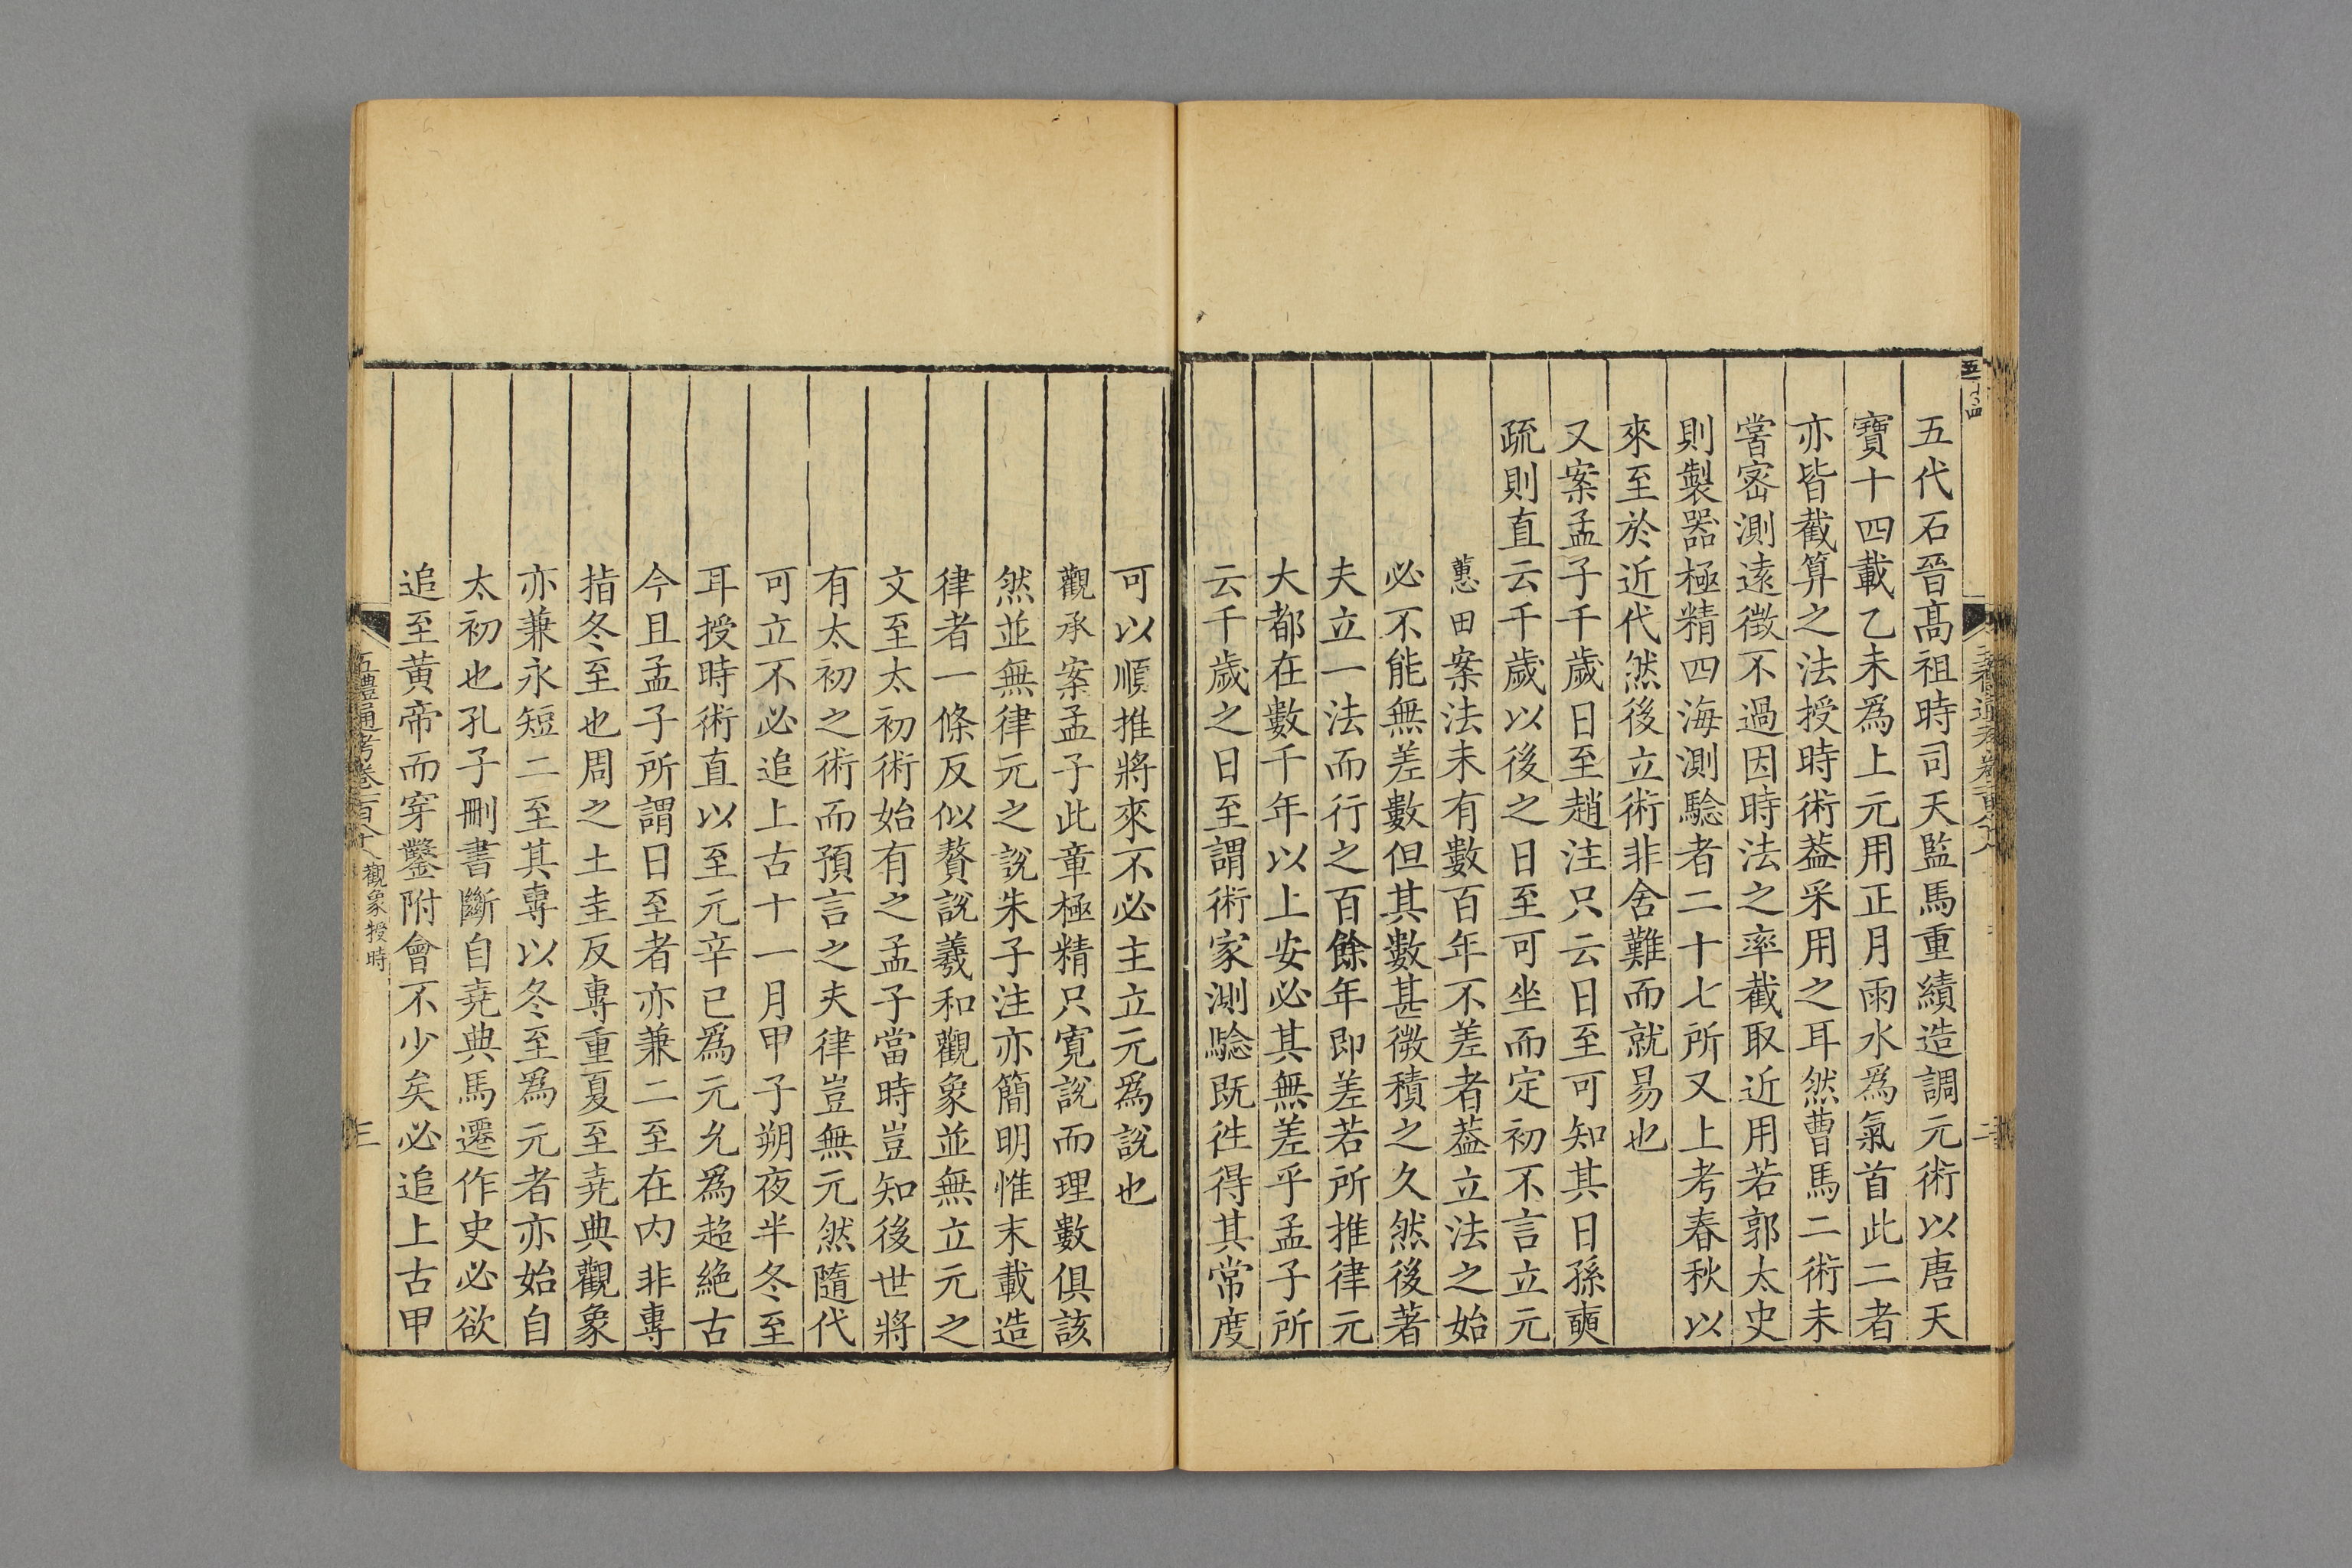 五代石晉髙祖時司天監馬重績造調元術以唐天
寶十四載乙未爲上元用正月雨水爲氣首此二者
亦皆截算之法授時術葢采用之耳然曹馬二術未
嘗宻測遠徴不過因時法之率截取近用若郭太史
則製器極精四海測騐者二十七所又上考春秋以
來至於近代然後立術非舍難而就易也
又案孟子千歲日至趙注只云日至可知其日孫奭
疏則直云千歲以後之日至可坐而定初不言立元
蕙田案法未有數百年不差者葢立法之始
必不能無差數但其數甚微積之久然後著
夫立一法而行之百餘年即差若所推律元
大都在數千年以上安必其無差乎孟子所
云千歲之日至謂術家測騐既徃得其常度
可以順推將來不必主立元爲說也
觀承案孟子此章極精只寛說而理數俱該
然並無律元之說朱子注亦簡明惟末載造
律者一條反似贅說羲和觀象並無立元之
文至太初術始有之孟子當時豈知後世將
有太初之術而預言之夫律豈無元然隨代
可立不必追上古十一月甲子朔夜半冬至
耳授時術直以至元辛巳爲元允爲超絶古
今且孟子所謂日至者亦兼二至在内非專
指冬至也周之土圭反專重夏至堯典觀象
亦兼永短二至其專以冬至爲元者亦始自
太初也孔子刪書斷自堯典馬遷作史必欲
追至黄帝而穿鑿附會不少矣必追上古甲
五禮通考卷一百八十八 觀象授時
三